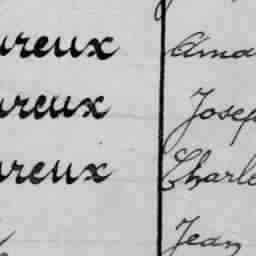 ureux Ama
ureux Josep
ureux Charle
Jean